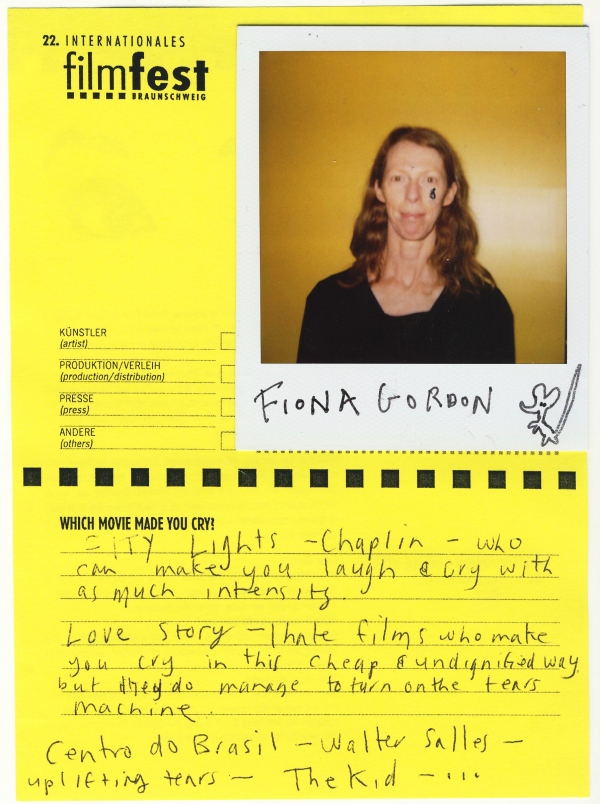 22. INTERNATIONALES
filmfest
BRAUNSCHWEIG
KÜNSTLER
(artist)
PRODUKTION/VERLEIH
(production/distribution)
PRESSE
(press)
ANDERE
(others)
FIONA GORDON
WHICH MOVIE MADE YOU CRY?
CITY Lights - Chaplin - who
can make you laugh & cry with
as much intensity.
Love Story - I hate films who make
you cry in this cheap & undignified way
but they do manage to turn on the tears
machine.
Centro do Brasil - Walter Salles -
uplifting tears - The Kid - ...